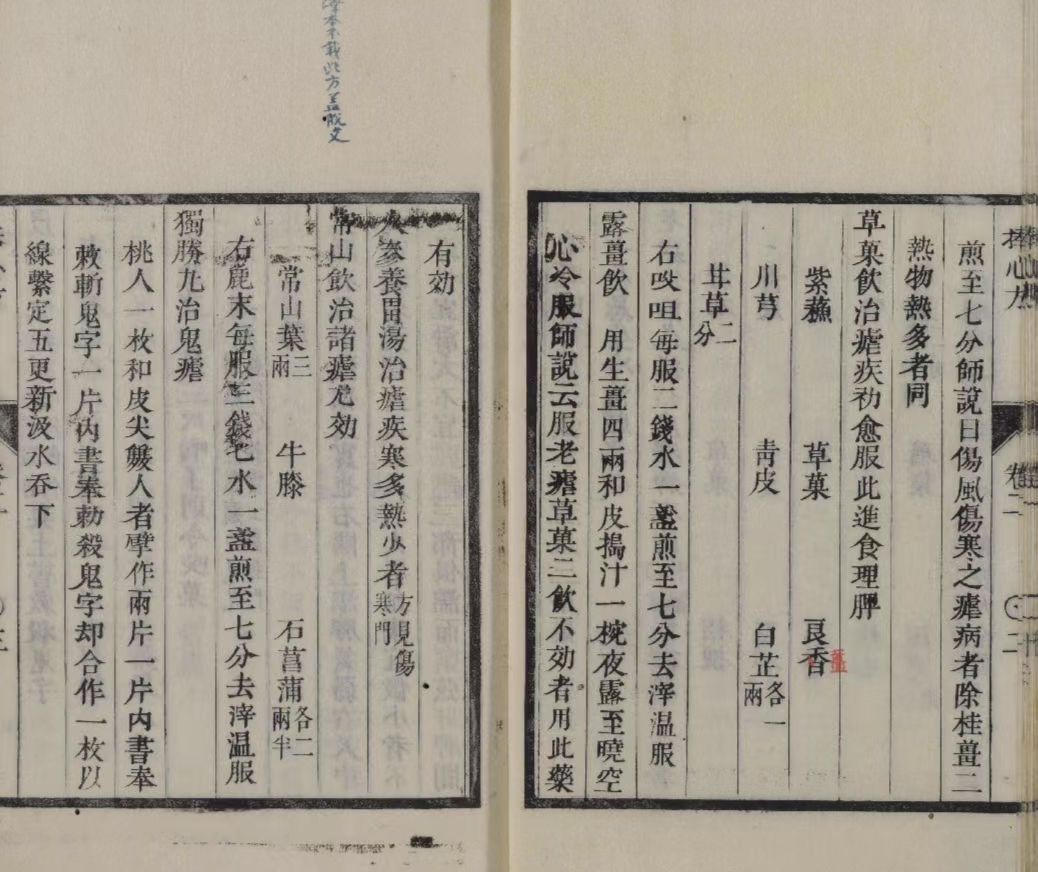 捧心方
卷二
煎至七分師說曰傷風傷寒之瘧病者除桂薑二
熱物熱多者同
草菓飲治瘧疾初愈服此進食理脾
紫蘓 草菓 良香
川芎 青皮 白芷各一兩
甘草二分
右㕮咀每服二錢水一盞煎至七分去滓温服
露薑飲 用生薑四兩和皮搗汁一椀夜露至曉空
心冷服師說云服老瘧草菓二飲不効者用此藥
有効
人參養胃湯治瘧疾寒多熱少者方見傷寒門
常山飲治諸瘧尤効
常山葉三兩 牛膝 石菖蒲各二兩半
右鹿末每服三錢匕水一盞煎至七分去滓温服
獨勝丸治鬼瘧
桃人一枚和皮尖雙人者擘作兩片一片内書奉
敕斬鬼字一片内書奉勅殺鬼字却合作一枚以
線繫定五更新汲水吞下
本不載此方